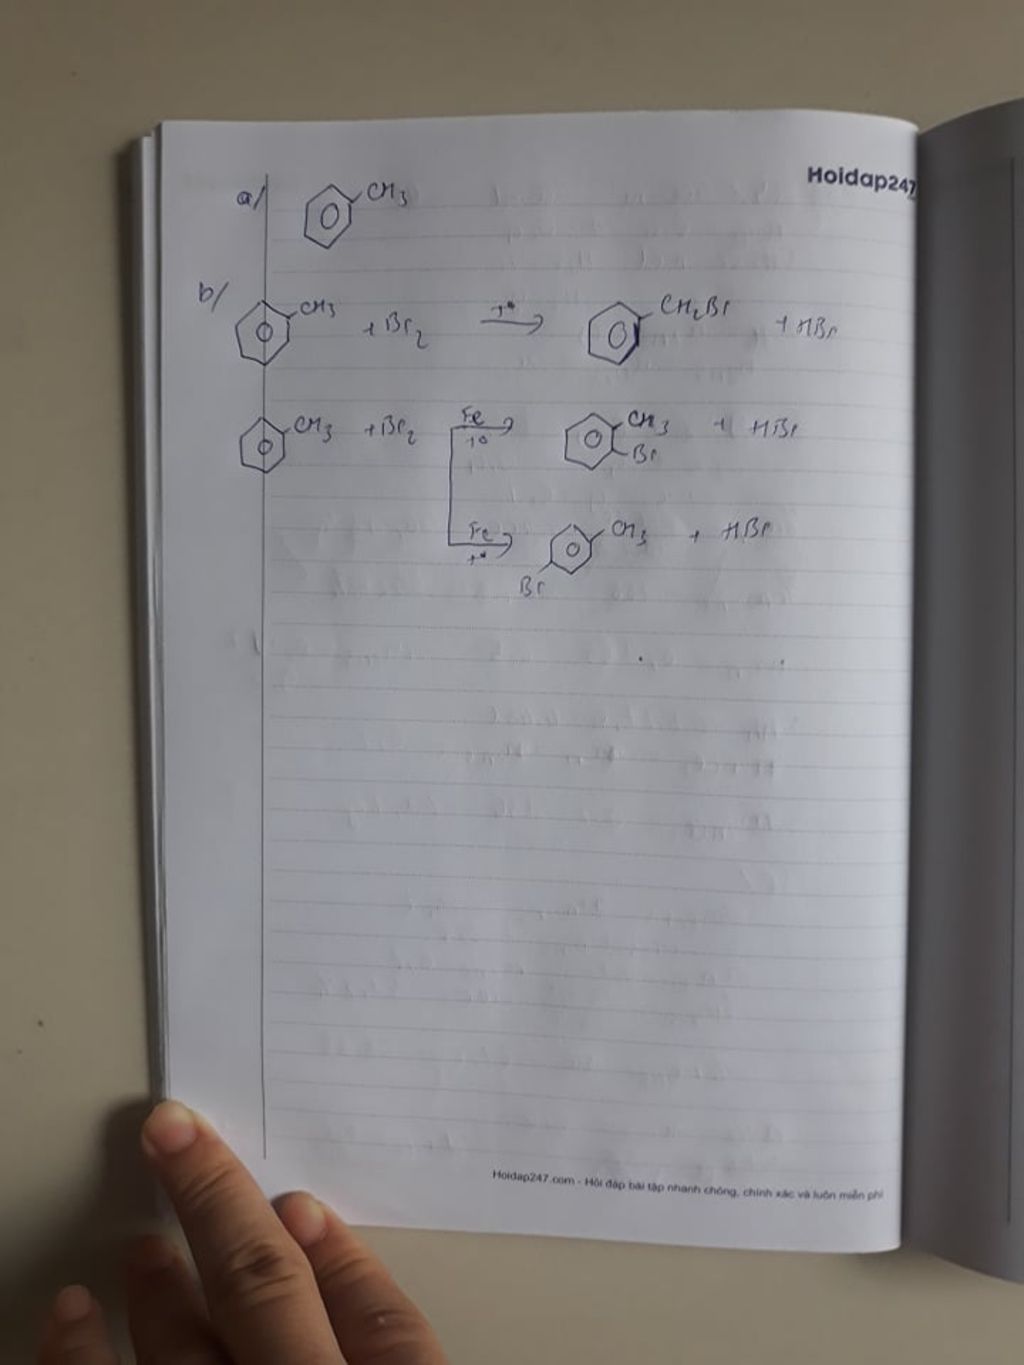 Hoidap247
a/ CH3
b/ CH3 + Br2 t° CH2Br + HBr
CH3 + Br2 Fe t° CH3 Br + HBr
Fe t° CH3 Br + HBr
Hoidap247.com - Hỏi đáp bài tập nhanh chóng, chính xác và luôn miễn phí